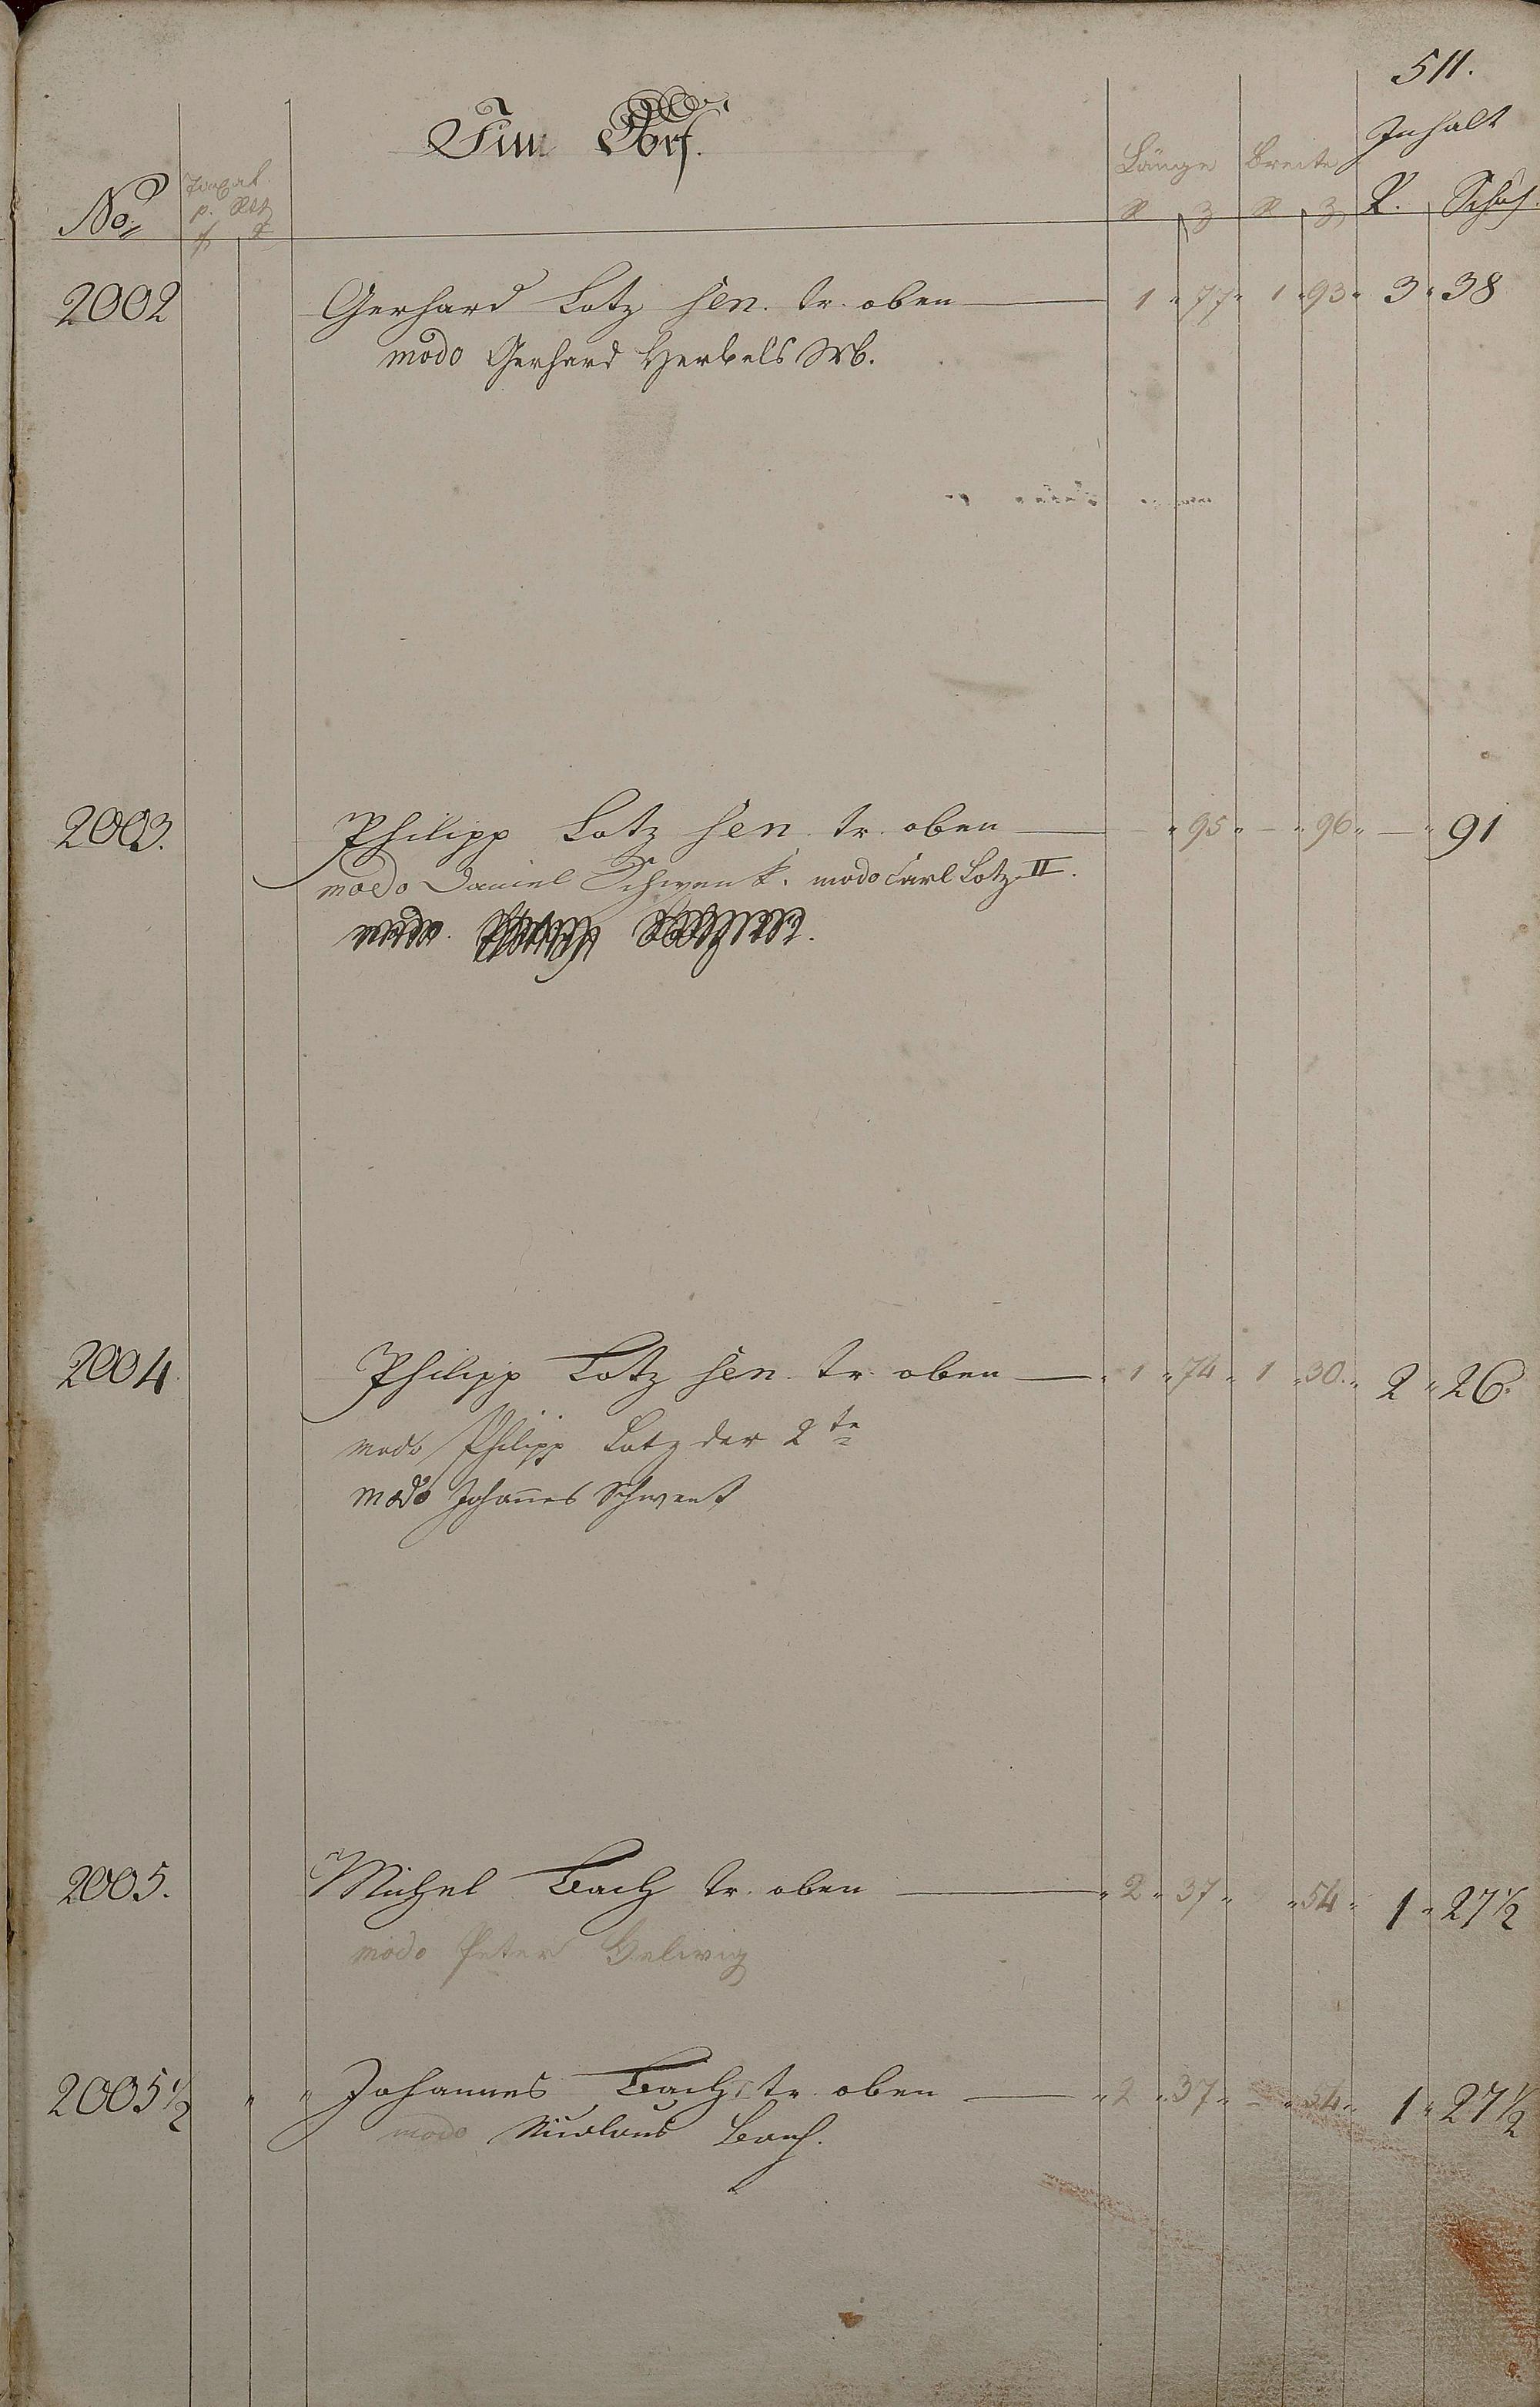 511.
Im Dorf.
No. Länge Breite Inhalt
R. Schuh.
2002 Gerhard Lotz sen. tr. oben 1 " 77 " 1 " 93 " 3 " 38
modo Gerhard Herbels Wb.
2003. Philipp Lotz sen. tr. oben — " 95 " — " 96 " — " 91
modo Daniel Schwenk. modo Carl Lotz II.
modo
2004 Philipp Lotz sen. tr. oben 1 " 74 " 1 " 30 " 2 " 26.
modo Philipp Lotz der 2te
modo Johannes Schwenk
2005. Michel Bach tr. oben " 2 " 37 " " 54 " 1 " 27 1/2
modo Peter Helwig
2005 1/2 " " Johannes Bach tr. oben " 2 " 37 " — " 54 " 1 " 27 1/2
modo Nicolaus Bach.